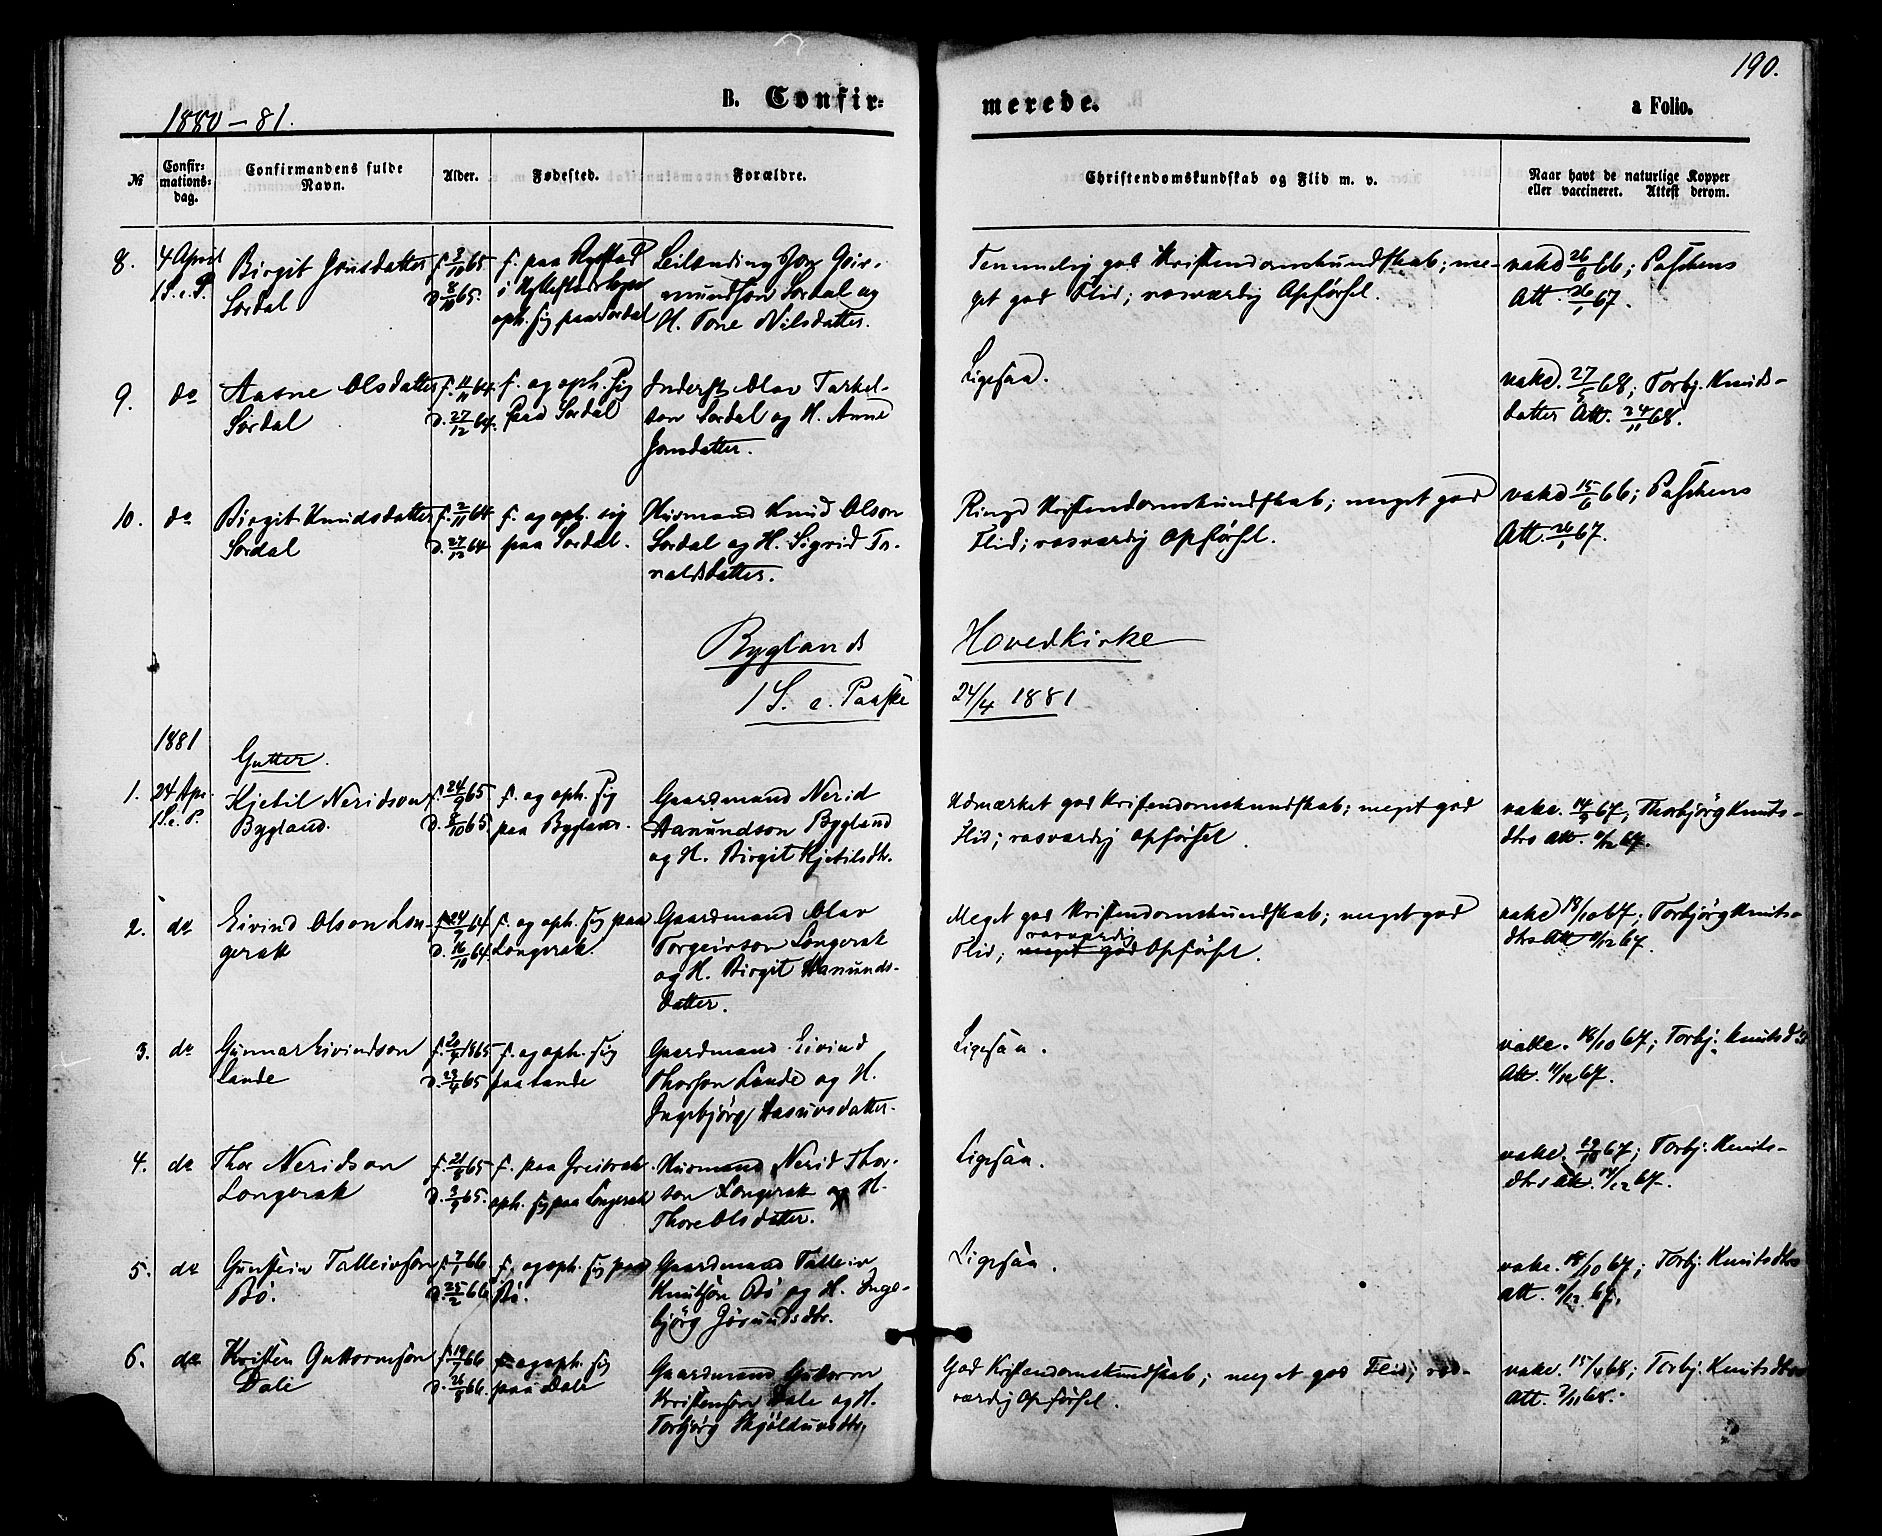 190.
1880-81.
B. Confir-
merede.
a Folio.
№
Confir-
mations-
dag.
Confirmandens fulde
Navn.
Alder.
Fødested.
Forældre.
Christendomskundskab og Flid m. v.
Naar havt de naturlige Kopper
eller vaccineret. Attest derom.
8.
4 April
1 S. e. P.
Birgit Jonsdatter
Sordal
f. 3/10 65
D. 8/10 65.
f. paa Rystad
i Hyllestad Sogn
oph. sig paa Sordal
Leilænding Jon Geir-
mundson Sordal og
H. Tone Nilsdatter.
Temmelig god Kristendomskundskab; me-
get god Flid; rosværdig Opførsel.
vakd 26/6 66; Paschens
Att. 26/1 67.
9.
do
Aasne Olsdatter
Sordal
f. 11/11 64.
D. 27/12 64.
f. og oph. sig
paa Sordal
Inderst Olav Tarkel-
son Sordal og H. Anne
Jonsdatter.
Ligesaa.
vakd. 27/5 68; Torbj. Knuds-
datter Att. 24/11 68.
10.
do
Birgit Knudsdatter
Sordal
f. 2/11 64
D. 27/12 64
f. og oph. sig
paa Sordal.
Husmand Knud Olson
Sordal og H. Sigrid Tr-
naldsdatter.
Ringe Kristendomskundskab; meget god
Flid; rosværdig Opførsel.
vakd 15/6 66; Paschens
Att. 26/1 67.
Byglands
Hovedkirke
1 S. e. Paaske
24/4 1881
1881
Gutter.
1.
24 Apr.
1 S. e. P.
Kjetil Neridson
Bygland.
f. 24/9 65
D. 8/10 65.
f. og oph. sig
paa Bygland.
Gaardmand Nerid
Aanundson Bygland
og H. Birgit Kjetilsdtr.
Udmærket god Kristendomskundskab; meget god
Flid; rosværdig Opførsel.
vake. 14/9 67; Thorbjörg Knuts-
dtrs Att. 11/12 67.
2.
do
Eivind Olson Lon-
gerak
f. 24/9 64
D. 16/10 64
f. og oph. sig paa
Longerak.
Gaardmand Olav
Torgeirson Longerak
og H. Birgit Aanunds-
datter.
Meget god Kristendomskundskab; meget god
rosværdig
Flid; meget god Opførsel.
vake 18/10 67; Torbjörg Knuts-
dtrs Att. 11/12 67.
3.
do
Gunnar Eivindson
Lande
D. 23/4 65
f. og oph. sig
paa Lande
Gaardmand Eivind
Thorson Lande og H.
Ingebjörg Aasuvsdatter.
Ligesaa.
vakc. 18/10 67; Torbj. Knutsdtrs
Att. 11/12 67.
4.
do
Thor Neridson
Longerak
f. 21/8 65
D. 3/9 65.
f. paa Greibrok
oph. sig paa Longerak
Husmand Nerid Thor-
son Longerak og H.
Thore Olsdatter.
Ligesaa.
vake. 18/10 67; Torbj. Knuts-
dtrs Att. 11/12 67.
5.
do
Gunstein Talleivson
Bö.
f. 7/1 66
D. 25/2 66
f. og oph. sig paa
Bö.
Gaardmand Talleiv
Knutson Bö og H. Inge-
björg Jörundsdtr.
Ligesaa.
vake. 18/10 67; Torbj. Knutsdtrs
Att. 11/12 67.
6.
do
Kristen Guttormson
Dale
f. 19/7 66
D. 26/8 66.
f. og oph. sig
paa Dale
Gaardmand Guttorm
Kristenson Dale og H.
Torbjörg Skjöldulvsdtr.
God Kristendomskundskab; meget god Flid; ros-
værdig Opførsel.
vake. 15/4 68; Torbj. Knutsdtrs
Att. 7/11 68.